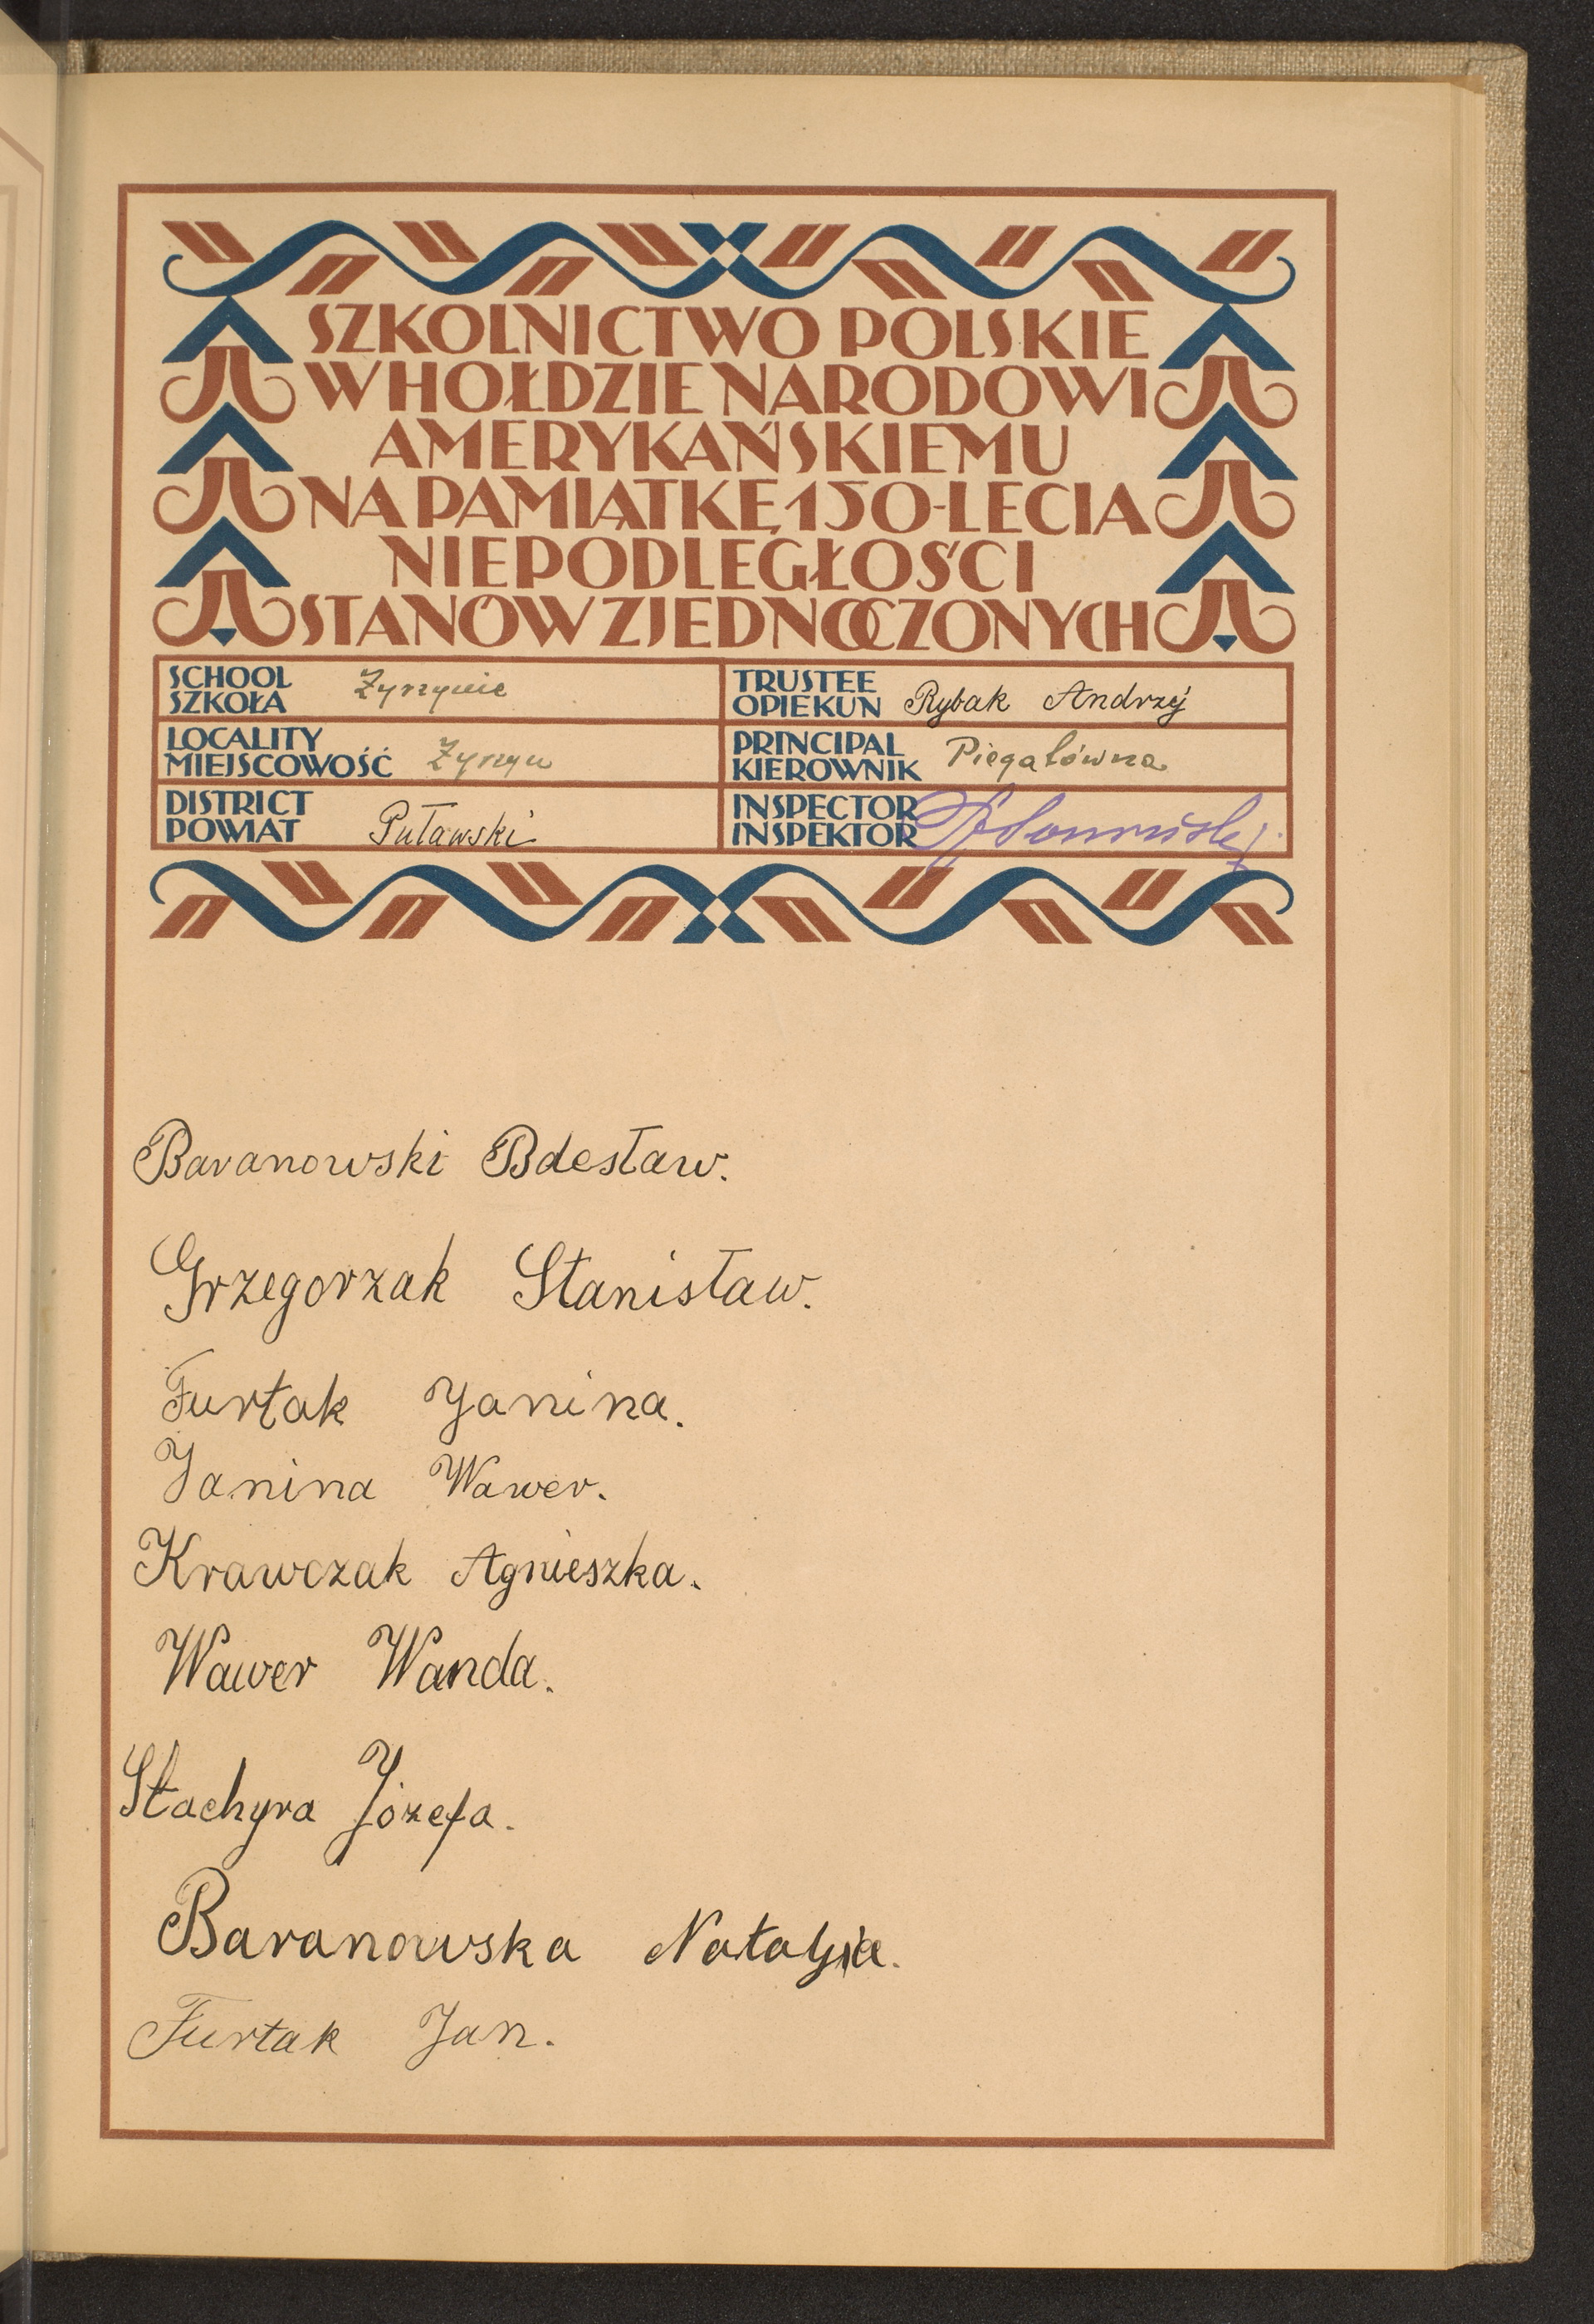 SZKOLNICTWO POLSKIE
W HOŁDZIE NARODOWI
AMERYKAŃSKIEMU
NA PAMIĄTKĘ 150-LECIA
NIEPODLEGŁOŚCI
STANÓW ZJEDNOCZONYCH
SCHOOL
SZKOŁA Żyrzynie
TRUSTEE
OPIEKUN Rybak Andrzej
LOCALITY
MIEJSCOWOŚĆ Żyrzyn
PRINCIPAL
KIEROWNIK Piegatówna
DISTRICT
POWIAT Puławski
INSPECTOR
INSPEKTOR
Baranowski Bdesław.
Grzegorzak Stanisław.
Furtak Janina.
Janina Wawer.
Krawczak Agnieszka.
Wawer Wanda.
Stachyra Józefa.
Baranowska Natalja.
Furtak Jan.